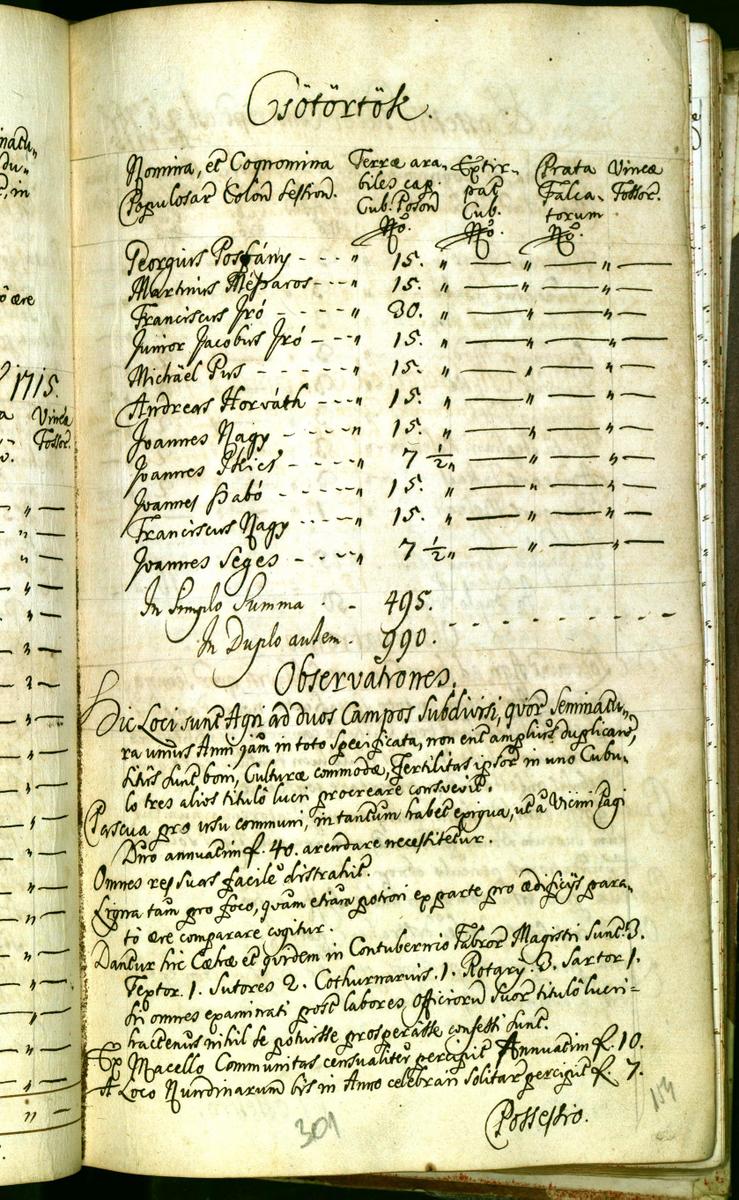 Csötörtök.
Nomina, et Cognomina Terræ ara- Extir- Prata Vineæ
Populosar Colon Session. biles cap. pat Falca- Fossor.
Cub. Poson Cub. torum
No. No. No.
Georgius Posgány - - - " 15. " — " — " —
Martinus Mészaros - - - " 15. " — " — " —
Franciscus Iró - - - - " 30. " — " — " —
Junior Jacobus Iró - - - " 15. " — " — " —
Michäel Pus - - - - - " 15. " — " — " —
Andreas Horváth - - - " 15. " — " — " —
Joannes Nagy - - - - " 15. " — " — " —
Joannes - - - - " 7 1/2 " — " — " —
Joannes Szabó - - - - " 15. " — " — " —
Franciscus Nagy - - - - " 15. " — " — " —
Joannes Seges - - - - " 7 1/2 " — " — " —
In Simplo Summa - - 495.
In Duplo autem. 990.
Observationes.
Hic Loci sunt Agri ad duos Campos Subdivisi, quor Seminatu-
ra unius Anni jam in toto specificata, non erit amplius duplicand,
sitûs sunt boni, Culturæ commodæ, Fertilitas ipsor in uno Cubu-
lo tres alios titulô lucri procreare consvevit.
Pascua pro usu communi, in tantum habet exigua, ut a Vicini Pagi
Diro annuatim f. 40. arendare necessitetur.
Omnes res suas facile distrahit.
Ligna tam pro foco, quam etiam potiori ex parte pro ædificijs para-
tô ære comparare cogitur.
Dantur hic Cæhæ et quidem in Contubernio Fabror Magistri sunt 3.
Textor. 1. Sutores 2. Cothurnarius. 1. Rotary. 3. Sartor 1.
hi omnes examinati post labores, Officiorum suor titulô lucri
hactenus nihil se potuisse prosperasse confessi sunt.
Ex Macello Communitas censualiter percipit Annuatim f. 10.
A Loco Nundinarum bis in Anno celebrari solitar percipit f. 7.
Possessio.
301
154
1715.
Vineæ
Fossor.